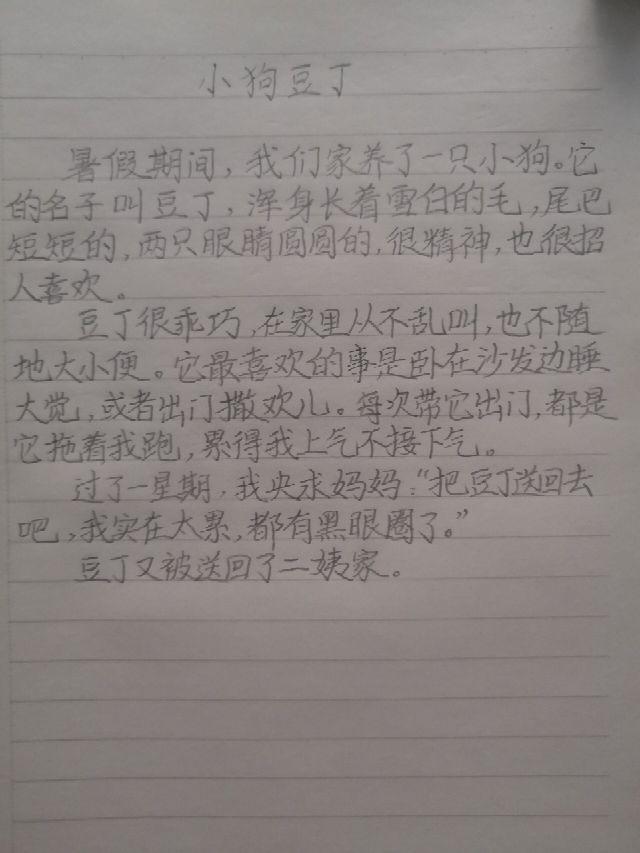 小狗豆丁
暑假期间，我们家养了一只小狗。它
的名子叫豆丁，浑身长着雪白的毛，尾巴
短短的，两只眼睛圆圆的，很精神，也很招
人喜欢。
豆丁很乖巧，在家里从不乱叫，也不随
地大小便。它最喜欢的事是卧在沙发边睡
大觉，或者出门撒欢儿。每次带它出门，都是
它拖着我跑，累得我上气不接下气。
过了一星期，我央求妈妈：“把豆丁送回去
吧，我实在太累，都有黑眼圈了。”
豆丁又被送回了二姨家。